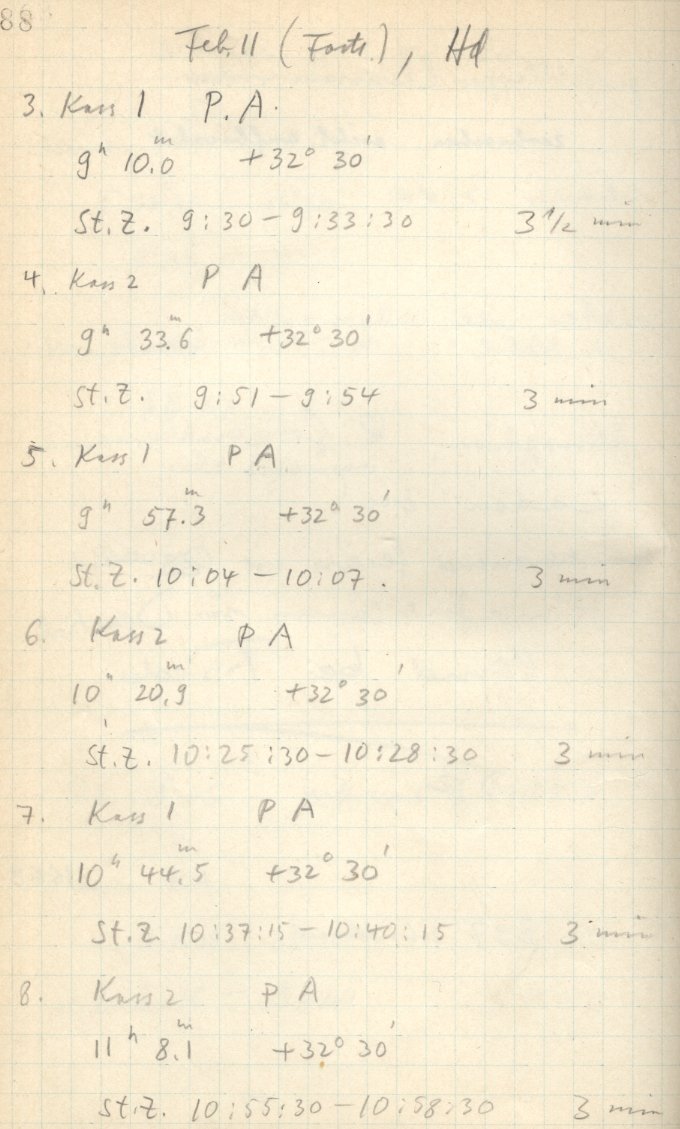 88
Feb. 11 (Forts.), Hd
3. Kass 1 P. A.
9ʰ 10.0ᵐ +32° 30'
St. Z. 9:30 – 9:33:30 3 1/2 min
4. Kass 2 P A
9ʰ 33.6ᵐ +32° 30'
St. Z. 9:51 – 9:54 3 min
5. Kass 1 P A
9ʰ 57.3ᵐ +32° 30'
St. Z. 10:04 – 10:07. 3 min
6. Kass 2 P A
10ʰ 20.9ᵐ +32° 30'
St. Z. 10:25:30 – 10:28:30 3 min
7. Kass 1 P A
10ʰ 44.5ᵐ +32° 30'
St. Z. 10:37:15 – 10:40:15 3 min
8. Kass 2 P A
11ʰ 8.1ᵐ +32° 30'
St. Z. 10:55:30 – 10:58:30 3 min